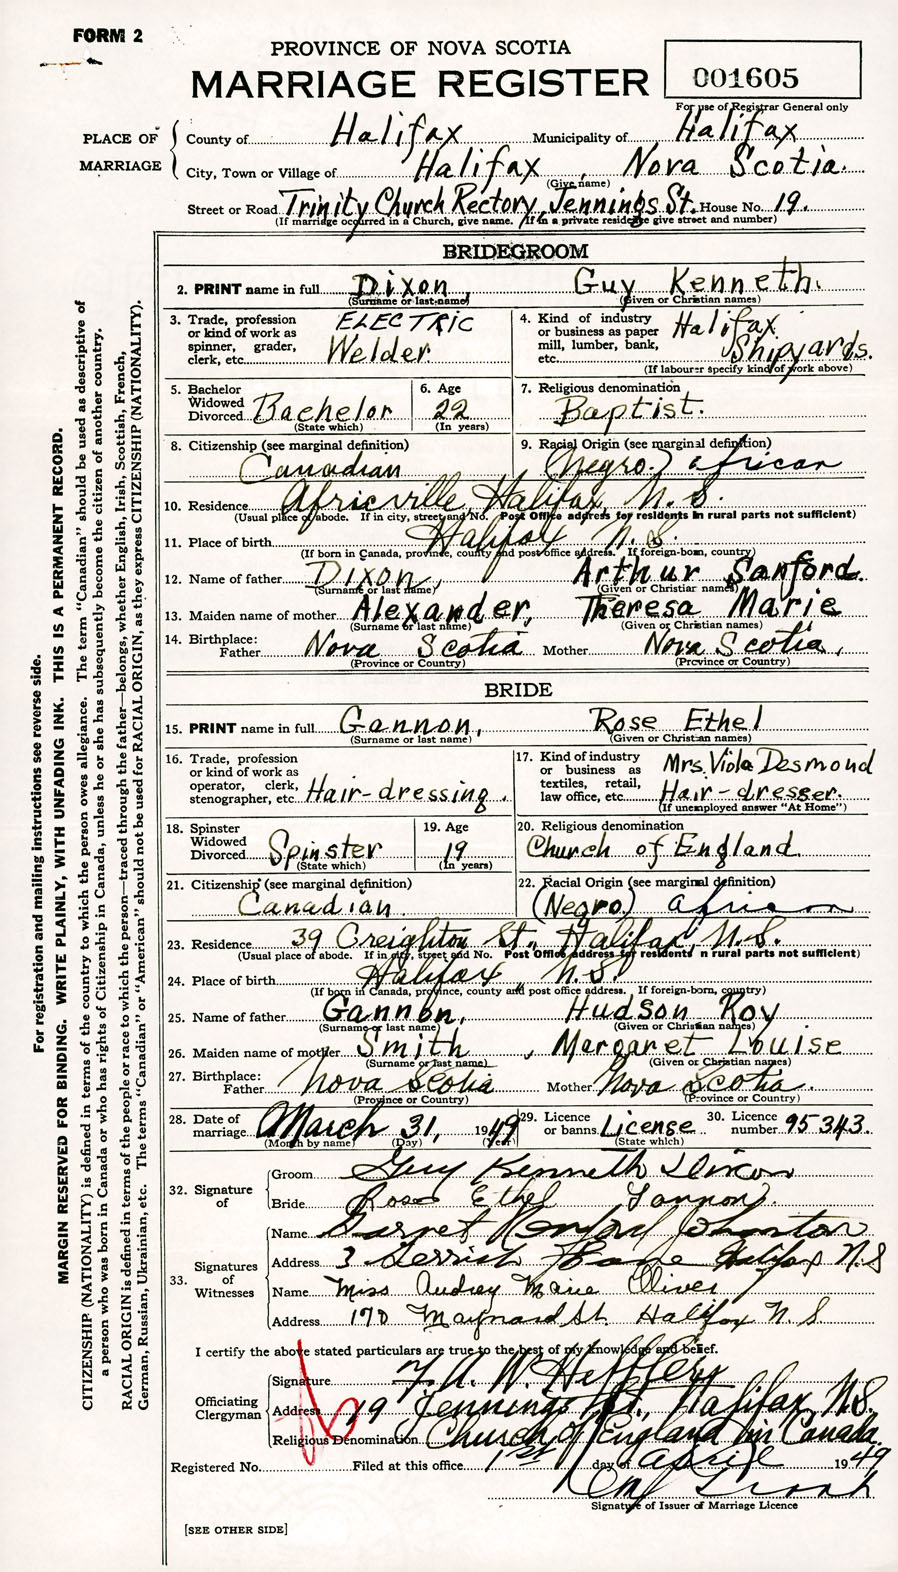 FORM 2
PROVINCE OF NOVA SCOTIA
MARRIAGE REGISTER
001605
For use of Registrar General only
PLACE OF MARRIAGE
County of Halifax Municipality of Halifax
City, Town or Village of Halifax, Nova Scotia.
(Give name)
Street or Road Trinity Church Rectory, Jennings St. House No. 19.
(If marriage occurred in a Church, give name. If in a private residence give street and number)
BRIDEGROOM
2. PRINT name in full Dixon, Guy Kenneth.
(Surname or last name) (Given or Christian names)
3. Trade, profession or kind of work as spinner, grader, clerk, etc. ELECTRIC Welder
4. Kind of industry or business as paper mill, lumber, bank, etc. Halifax Shipyards.
(If labourer specify kind of work above)
5. Bachelor Widowed Divorced Bachelor
(State which)
6. Age 22
(In years)
7. Religious denomination Baptist.
8. Citizenship (see marginal definition) Canadian
9. Racial Origin (see marginal definition) (Negro) African
10. Residence Africville, Halifax, N.S.
(Usual place of abode. If in city, street and No. Post Office address for residents in rural parts not sufficient)
11. Place of birth Halifax N.S.
(If born in Canada, province, county and post office address. If foreign-born, country)
12. Name of father Dixon, Arthur Sanford.
(Surname or last name) (Given or Christian names)
13. Maiden name of mother Alexander, Theresa Marie
(Surname or last name) (Given or Christian names)
14. Birthplace: Father Nova Scotia Mother Nova Scotia,
(Province or Country) (Province or Country)
BRIDE
15. PRINT name in full Gannon, Rose Ethel
(Surname or last name) (Given or Christian names)
16. Trade, profession or kind of work as operator, clerk, stenographer, etc. Hair-dressing.
17. Kind of industry or business as textiles, retail, law office, etc. Mrs. Viola Desmond Hair-dresser.
(If unemployed answer "At Home")
18. Spinster Widowed Divorced Spinster
(State which)
19. Age 19
(In years)
20. Religious denomination Church of England
21. Citizenship (see marginal definition) Canadian
22. Racial Origin (see marginal definition) (Negro) African
23. Residence 39 Creighton St., Halifax, N.S.
(Usual place of abode. If in city, street and No. Post Office address for residents in rural parts not sufficient)
24. Place of birth Halifax N.S.
(If born in Canada, province, county and post office address. If foreign-born, country)
25. Name of father Gannon, Hudson Roy
(Surname or last name) (Given or Christian names)
26. Maiden name of mother Smith, Margaret Louise
(Surname or last name) (Given or Christian names)
27. Birthplace: Father Nova Scotia Mother Nova Scotia.
(Province or Country) (Province or Country)
28. Date of marriage March 31, 1949
(Month by name) (Day) (Year)
29. Licence or banns License
(State which)
30. Licence number 95343.
32. Signature of
Groom Guy Kenneth Dixon
Bride Rose Ethel Gannon.
33. Signatures of Witnesses
Name Garnet Johnston
Address 3 Gerrish Halifax N.S
Name Miss Audrey Marie Oliver
Address 170 Maynard St. Halifax N.S
I certify the above stated particulars are true to the best of my knowledge and belief.
Officiating Clergyman
Signature
Address 19 Jennings St., Halifax, N.S.
Religious Denomination Church of England in Canada.
Registered No. Filed at this office 1st day of April 1949
Signature of Issuer of Marriage Licence
[SEE OTHER SIDE]
For registration and mailing instructions see reverse side.
MARGIN RESERVED FOR BINDING. WRITE PLAINLY, WITH UNFADING INK. THIS IS A PERMANENT RECORD.
CITIZENSHIP (NATIONALITY) is defined in terms of the country to which the person owes allegiance. The term "Canadian" should be used as descriptive of
a person who was born in Canada or who has rights of Citizenship in Canada, unless he or she has subsequently become the citizen of another country.
RACIAL ORIGIN is defined in terms of the people or race to which the person—traced through the father—belongs, whether English, Irish, Scottish, French,
German, Russian, Ukrainian, etc. The terms "Canadian" or "American" should not be used for RACIAL ORIGIN, as they express CITIZENSHIP (NATIONALITY).